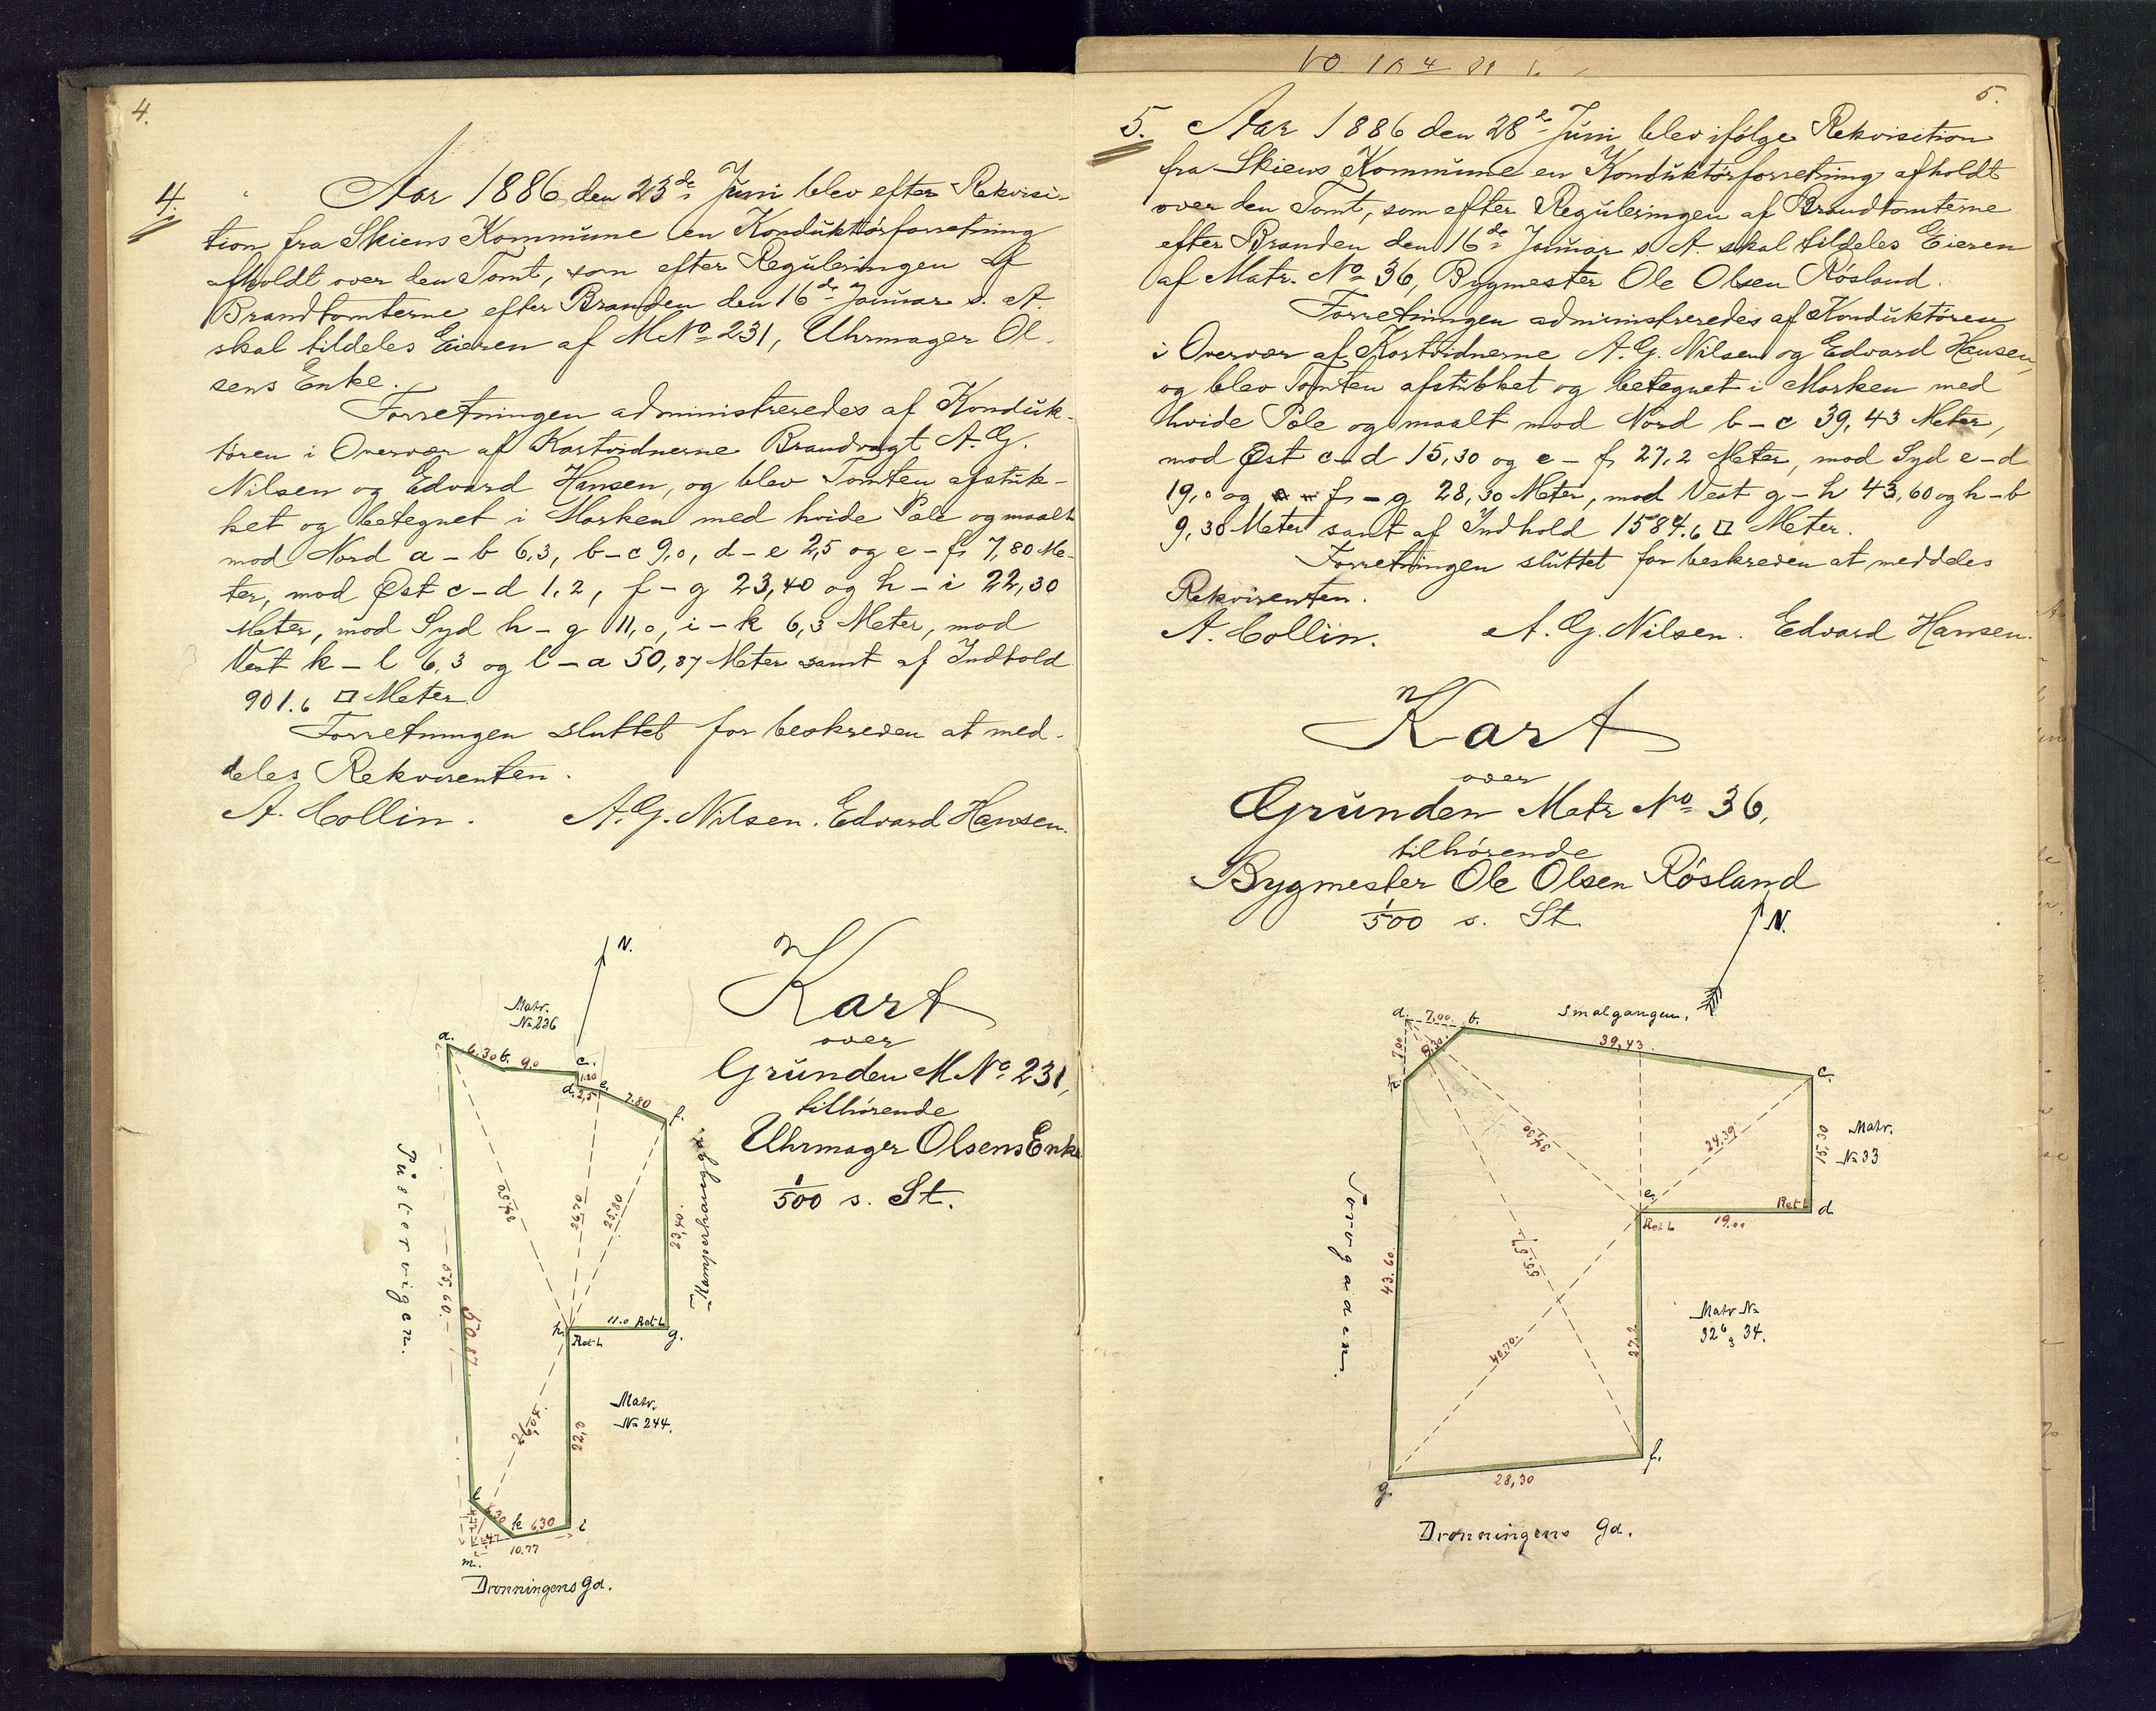 4.
4. Aar 1886 den 23de Juni blev efter Rekvisi-
tion fra Skiens Kommune en Konduktörforretning
afholdt over den Tomt, som efter Reguleringen af
Brandtomterne efter Branden den 16de Januar s. A.
skal tildeles Eieren af M No 231, Uhrmager Ol-
sens Enke.
Forretningen administreredes af Konduk-
tören i Overvær af Kartvidnerne Brandvagt A. G.
Nilsen og Edvard Hansen, og blev Tomten afstuk-
ket og betegnet i Marken med hvide Pæle og maalt
mod Nord a - b 6,3, b - c 9,0, d - e 2,5 og e - f 7,80 Me-
ter, mod Øst c - d 1,2, f - g 23,40 og h - i 22,30
Meter, mod Syd h - g 11,0, i - k 6,3 Meter, mod
Vest k - l 6,3 og l - a 50,87 Meter samt af Indhold
901.6 □ Meter.
Forretningen sluttet for beskreven at med-
deles Rekvirenten.
A. Collin. A. G. Nilsen. Edvard Hansen.
Kart
over
Grunden M No 231,
tilhörende
Uhrmager Olsens Enke
1/500 s. St.
N.
Matr.
No 236
a. 6.30 b. 9,0 c.
1.20
d. 2,5 e. 7.80 f.
26,70
25.80
23,40.
Kamperhauggt.
Püstervigen.
50.87
h. 11.0 Ret L g.
Ret L
Matr.
No 244.
22,3
l 6,30 k 6.30 i
4,47
10.77
m.
Dronningens Gd.
5.
5. Aar 1886 den 28de Juni blev ifølge Rekvisition
fra Skiens Kommune en Konduktörforretning afholdt
over den Tomt, som efter Reguleringen af Brandtomterne
efter Branden den 16de Januar s. A. skal tildeles Eieren
af Matr. No 36, Bygmester Ole Olsen Rösland.
Forretningen administreredes af Konduktören
i Overvær af Kartvidnerne A. G. Nilsen og Edvard Hansen,
og blev Tomten afstukket og betegnet i Marken med
hvide Pæle og maalt mod Nord b - c 39,43 Meter,
mod Øst c - d 15,30 og e - f 27,2 Meter, mod Syd e - d
19,0 og f - g 28,30 Meter, mod Vest g - h 43,60 og h - b
9,30 Meter samt af Indhold 1584.6 □ Meter.
Forretningen sluttet for beskreven at meddeles
Rekvirenten.
A. Collin. A. G. Nilsen. Edvard Hansen.
Kart
over
Grunden Matr No 36,
tilhörende
Bygmester Ole Olsen Rösland
1/500 s. St.
N.
Smalgangen.
a. 7,00. b.
7,00
9,30
h.
39,43.
c.
15,30
Matr.
No 33
34,30
24,39
e.
Ret L d
Ret L 19.00
Torvgaden.
43.60.
55.57
40,70.
27,2
Matr No
32b & 34.
g 28,30 f.
Dronningens Gd.